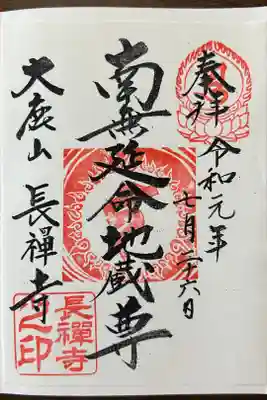 奉拝
令和元年
七月二十六日
南無延命地蔵尊
大鹿山
長禅寺
長禪寺
之印